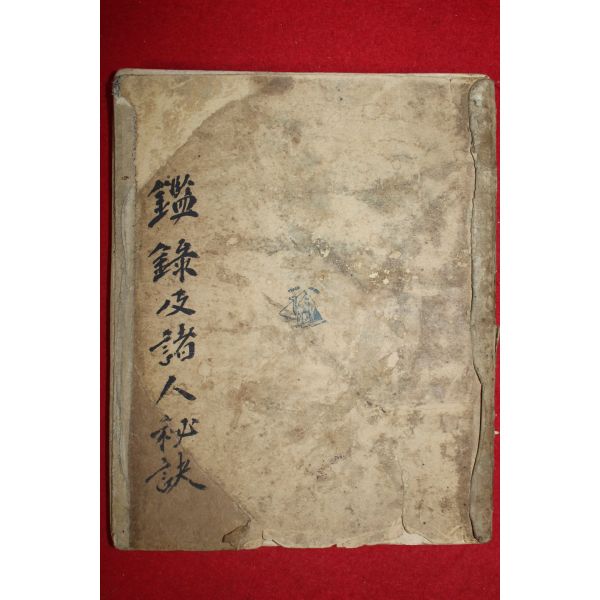 鑑錄及諸人秘訣